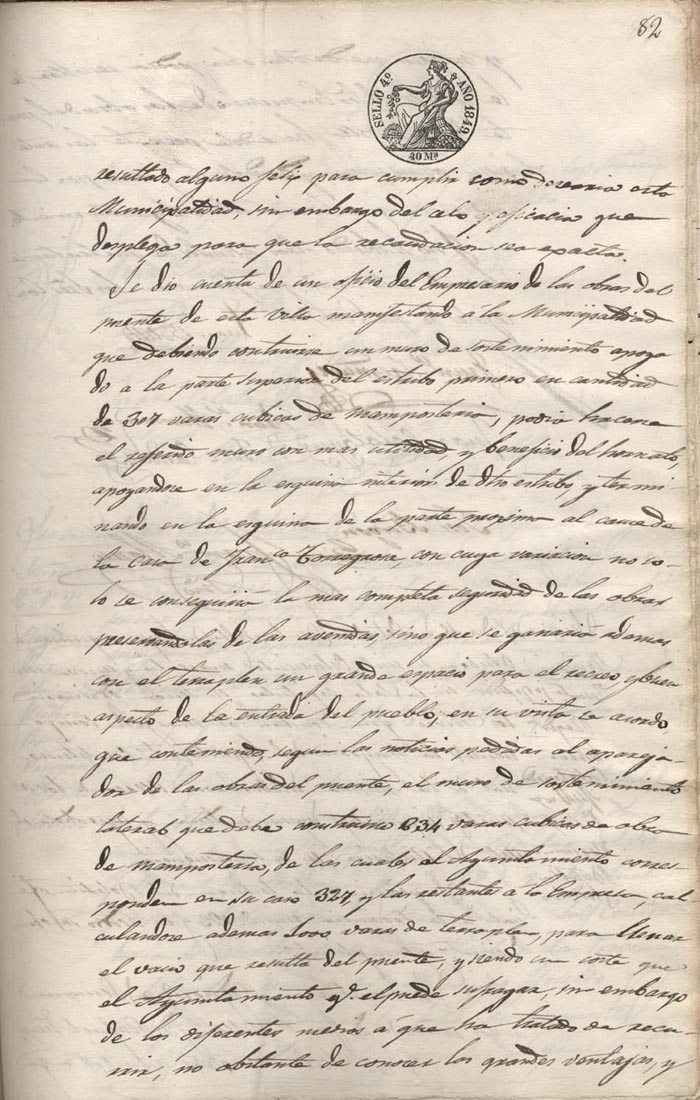 82
SELLO 4.º AÑO 1849
40 Ms
resultado alguno feliz para cumplir como desearia esta
Municipalidad, sin embargo del celo y eficacia que
desplega para que la recaudacion sea exacta.
Se dio cuenta de un oficio del Empresario de las obras del
puente de esta Villa manifestando á la Municipalidad
que debiendo construirse un muro de sostenimiento apoya
do a la parte superior del estribo primero en cantidad
de 307 varas cubicas de mamposteria, podia hacerse
el referido muro con mas utilidad y beneficio del
apoyandose en la esquina interior de dho estribo, y termi
nando en la esquina de la parte proxima al cauce de
la casa de Franco Torregrosa, con cuya variacion no so-
lo se conseguiria la mas completa seguridad de las obras
preservandolas de las avenidas, sino que se ganaria ademas
con el terraplen un grande espacio para el recreo, y buen
aspecto de la entrada del pueblo; en su vista se acordo
que conteniendo, segun las noticias pedidas al apareja-
dor de las obras del puente, el muro de sostenimiento
lateral que debe construirse 634 varas cubicas de obra
de mamposteria, de las cuales al Ayuntamiento corres-
ponden en su caso 327, y las restante a la Empresa, cal
culandose ademas 1000 varas de terraplen, para llenar
el vacio que resulta del puente, y siendo un coste que
el Ayuntamiento qe. el puede sufragar, sin embargo
de los diferentes medios á que ha tratado de recu
rrir, no obstante de conocer las grandes ventajas, y